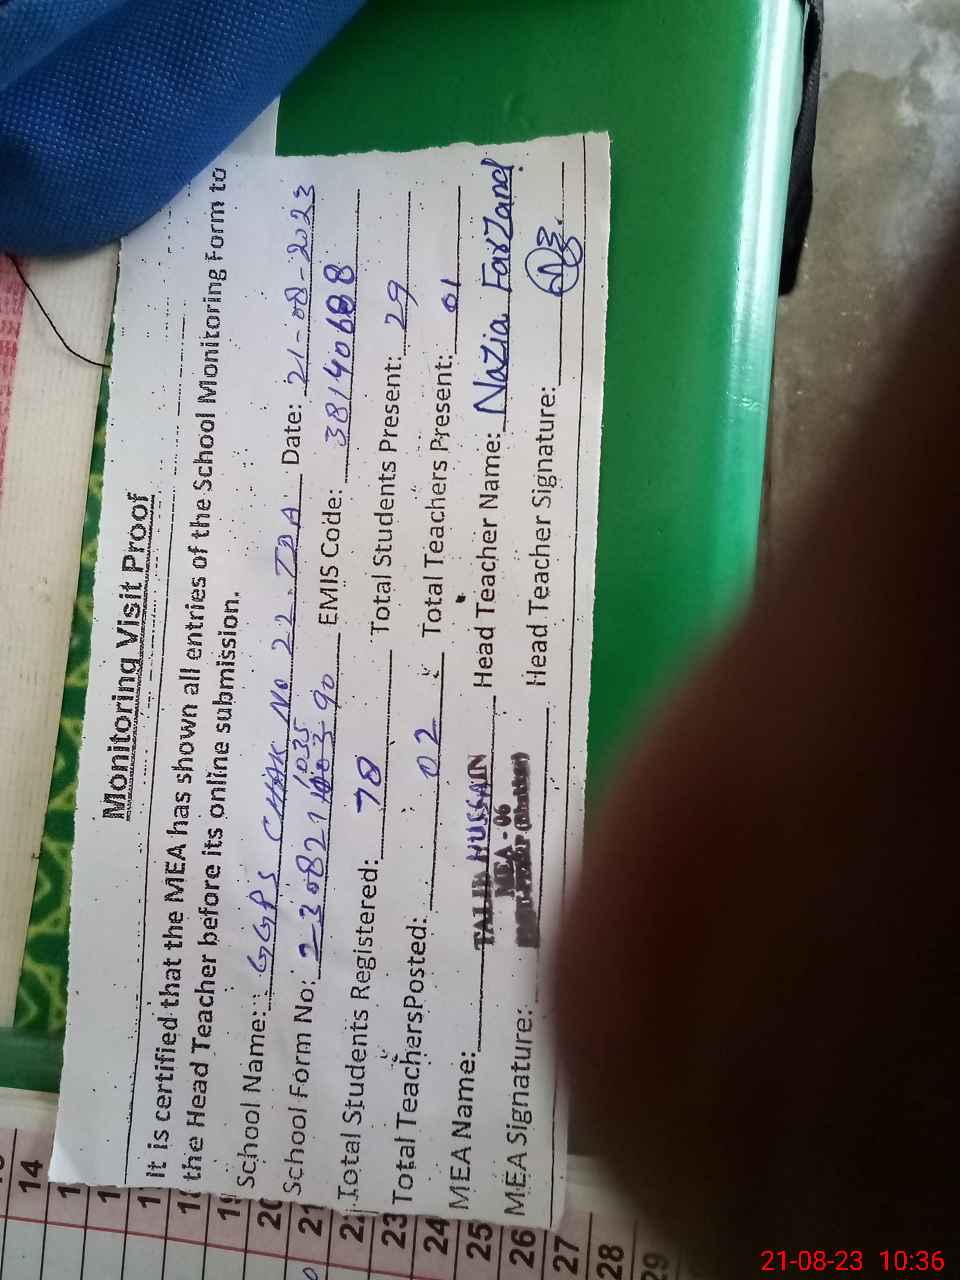 Monitoring Visit Proof
It is certified that the MEA has shown all entries of the School Monitoring Form to
the Head Teacher before its online submission.
School Name: GGPS CHAK NO 22. TDA Date: 21-08-2023
School Form No: 2308211035 90 EMIS Code: 38140688
Total Students Registered: 78 Total Students Present: 29
Total TeachersPosted: 02 Total Teachers Present: 01
MEA Name: TALIB HUSSAIN Head Teacher Name: Nazia Farzand
MEA - 06
MEA Signature: Head Teacher Signature:
14
19
20
21
22
23
24
25
26
27
28
29
21-08-23 10:36